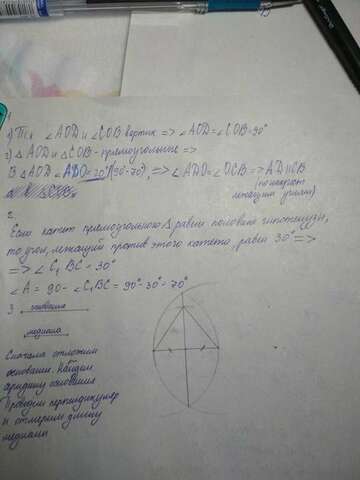 1) Т.к ∠AOD и ∠COB вертик => ∠AOD=∠COB=90°
2) △AOD и △COB - прямоугольные =>
В △AOD ∠ADO=20°(90-70), => ∠ADO=∠OCB => AD||CB
(накрест
лежащим углам)
2.
Если катет прямоугольного △ равен половине гипотенузы,
то угол, лежащий против этого катета, равен 30° =>
=> ∠C₁BC = 30°
∠A = 90 - ∠C₁BC = 90° - 30° = 70°
3 основание
медиана
Сначала отложим
основание. Найдем
середину основания
Проведем перпендикуляр
и отмерим длину
медианы